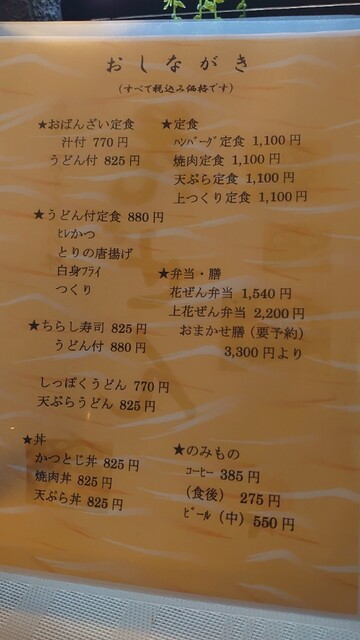 おしながき
(すべて税込み価格です)
★おばんざい定食
汁付 770円
うどん付 825円
★うどん付定食 880円
ﾋﾚかつ
とりの唐揚げ
白身ﾌﾗｲ
つくり
★ちらし寿司 825円
うどん付 880円
しっぽくうどん 770円
天ぷらうどん 825円
★丼
かつとじ丼 825円
焼肉丼 825円
天ぷら丼 825円
★定食
ﾊﾝﾊﾞｰｸﾞ定食 1,100円
焼肉定食 1,100円
天ぷら定食 1,100円
上つくり定食 1,100円
★弁当・膳
花ぜん弁当 1,540円
上花ぜん弁当 2,200円
おまかせ膳（要予約）
3,300円より
★のみもの
ｺｰﾋｰ 385円
（食後） 275円
ﾋﾞｰﾙ（中）550円